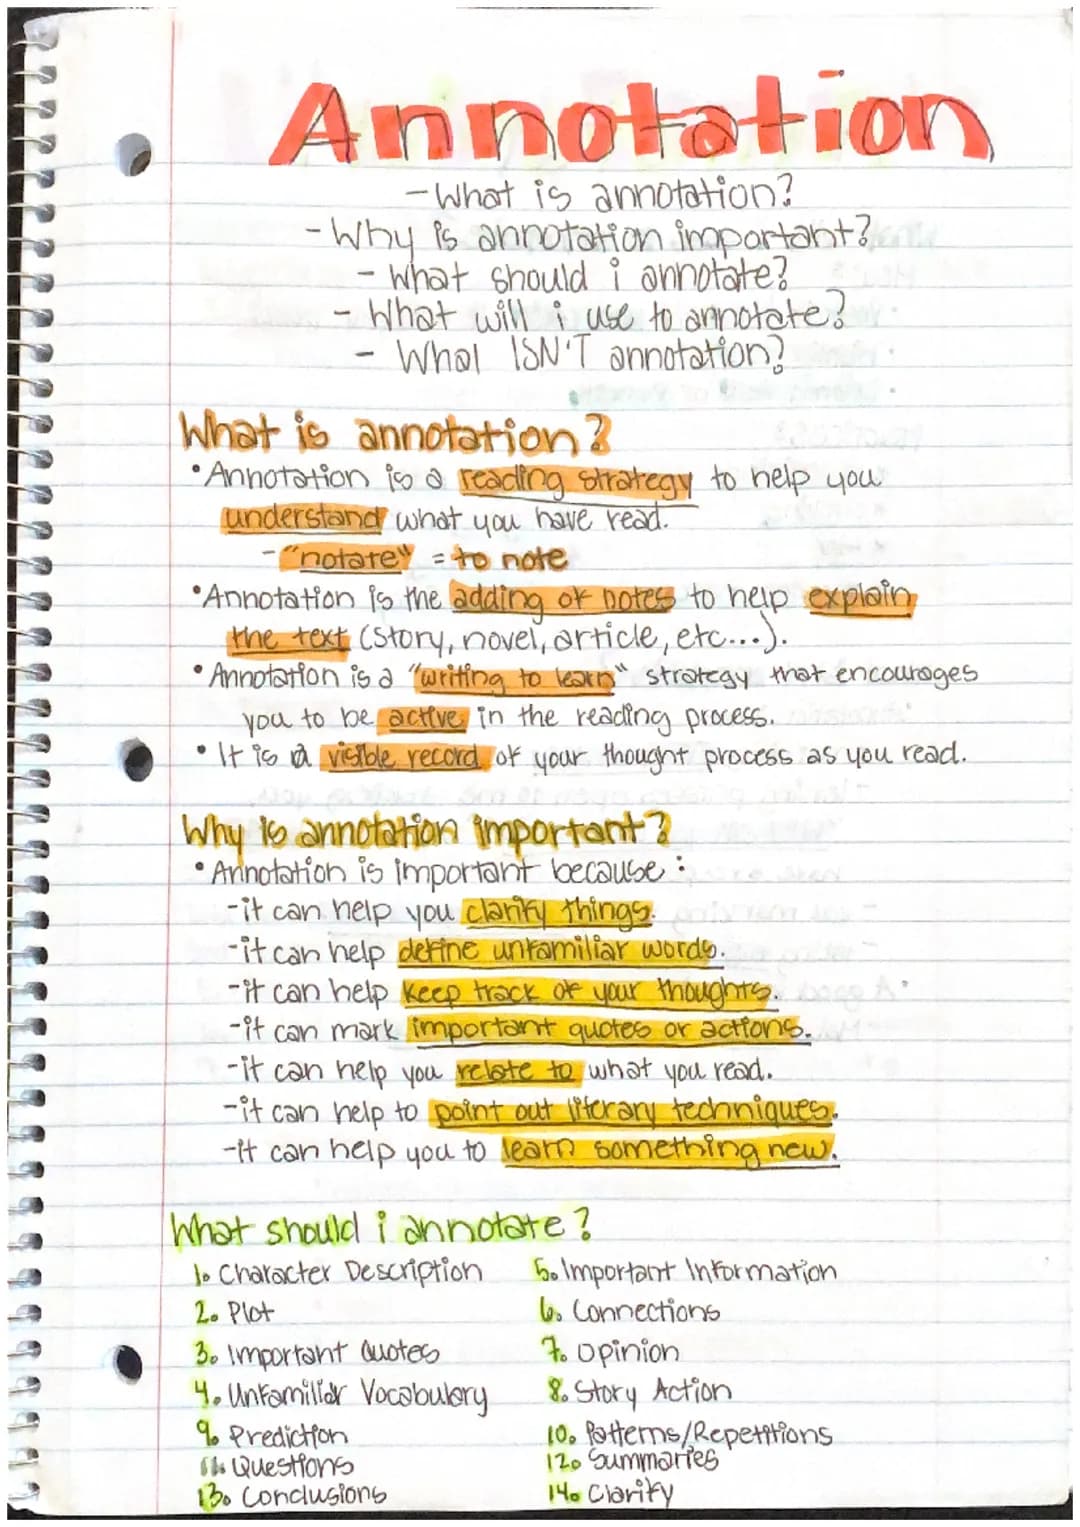 Annotation
- What is annotation?
- Why is annotation important?
- What should i annotate?
- What will i use to annotate?
- What ISN'T annotation?
What is annotation?
• Annotation is a reading strategy to help you
understand what you have read.
- "notate" = to note
• Annotation is the adding of notes to help explain
the text (story, novel, article, etc...).
• Annotation is a "writing to learn" strategy that encourages
you to be active in the reading process.
• It is a visible record of your thought process as you read.
Why is annotation important?
• Annotation is important because:
- it can help you clarify things.
- it can help define unfamiliar words.
- it can help keep track of your thoughts.
- it can mark important quotes or actions.
- it can help you relate to what you read.
- it can help to point out literary techniques.
- it can help you to learn something new.
What should i annotate?
1. Character Description 5. Important Information
2. Plot 6. Connections
3. Important Quotes 7. Opinion
4. Unfamiliar Vocabulary 8. Story Action
9. Prediction 10. Patterns/Repetitions
11. Questions 12. Summaries
13. Conclusions 14. Clarify